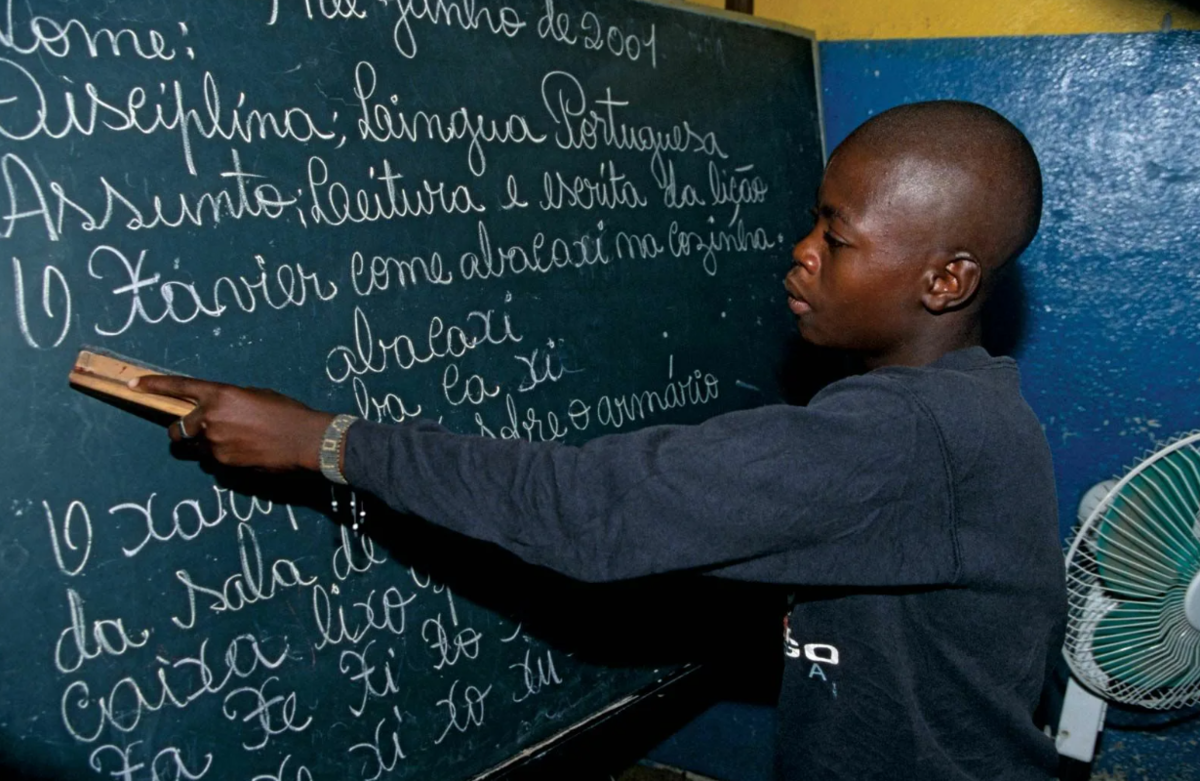 Nome: de junho de 2001
Disciplina: Leingua Portuguesa
Assunto: Leeitura e escrita da lição
O Xavier come abacaxi na cozinha.
abacaxi
ba ca xi
sobre o armário
O
da sala de
caixa lixo
Xa Xe Xi Xo
xi xo xu
GO
A